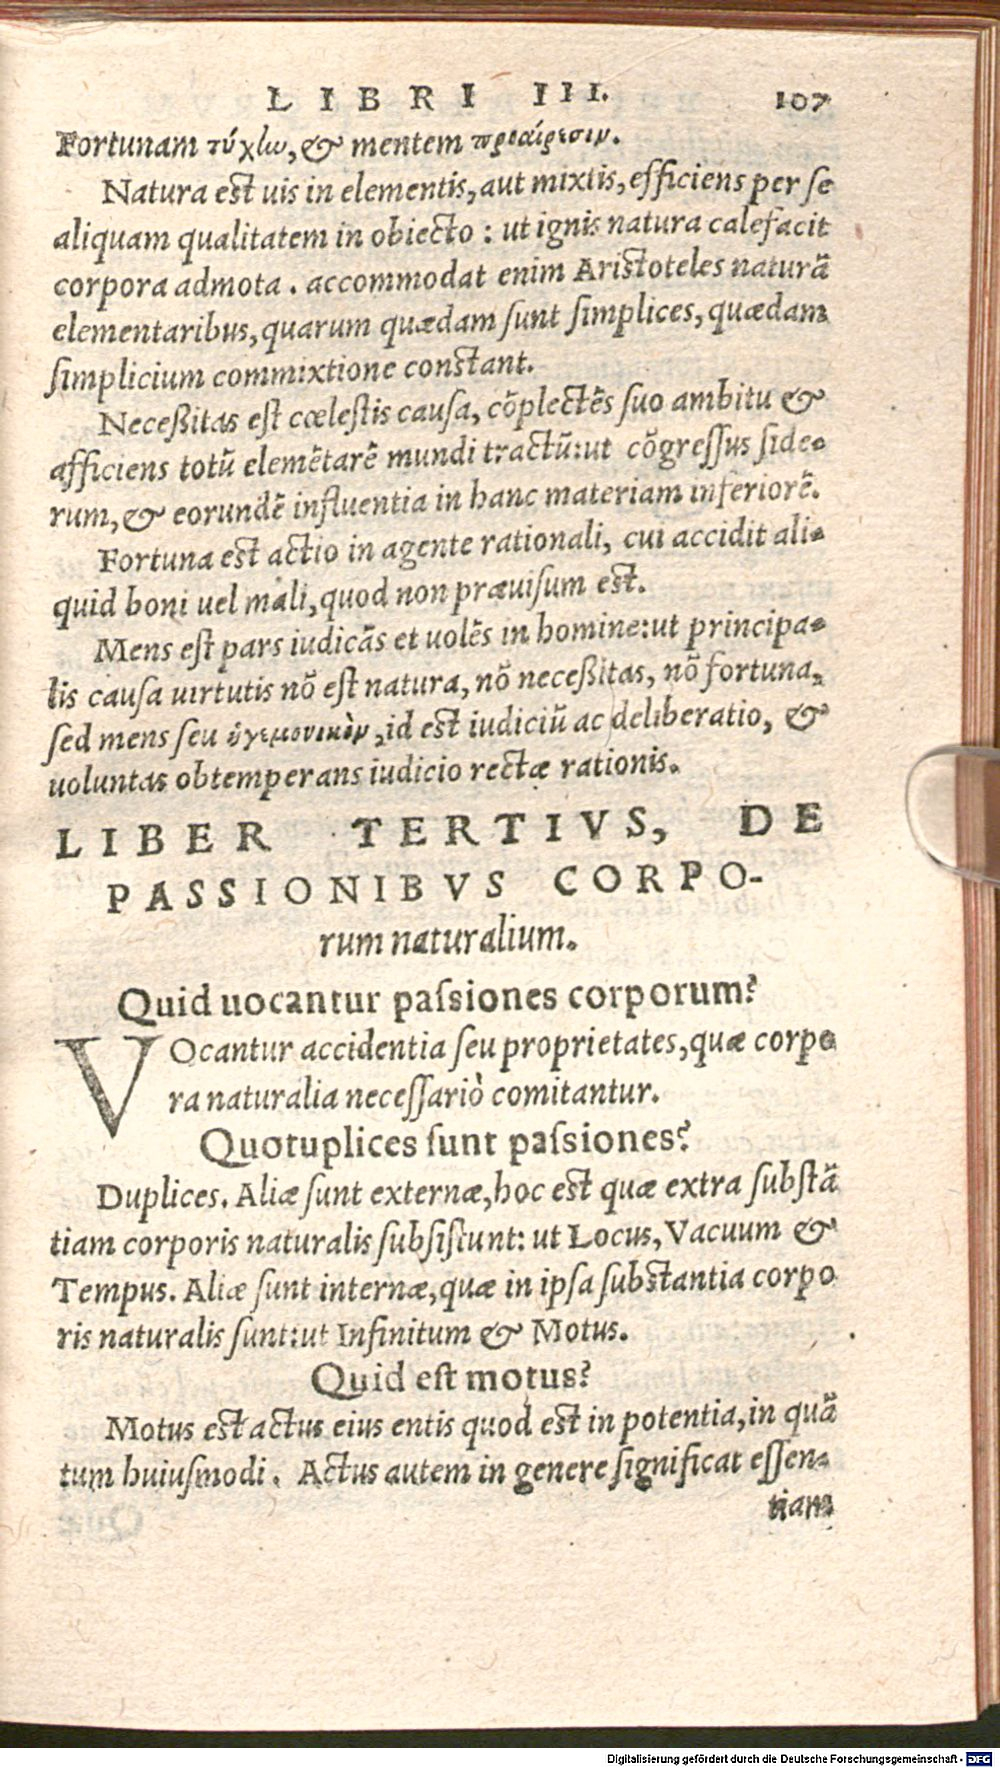 LIBRI III. 107
Fortunam τύχην, & mentem προαίρεσιν.
Natura est uis in elementis, aut mixtis, efficiens per se
aliquam qualitatem in obiecto : ut ignis natura calefacit
corpora admota . accommodat enim Aristoteles naturã
elementaribus, quarum quædam sunt simplices, quædam
simplicium commixtione constant.
Neceßitas est cœlestis causa, cõplectẽs suo ambitu &
afficiens totũ elemẽtarẽ mundi tractũ: ut cõgressus side-
rum, & eorundẽ influentia in hanc materiam inferiorẽ.
Fortuna est actio in agente rationali, cui accidit ali-
quid boni uel mali, quod non præuisum est.
Mens est pars iudicãs et uolẽs in homine: ut principa-
lis causa uirtutis nõ est natura, nõ neceßitas, nõ fortuna,
sed mens seu ἡγεμονικὸν, id est iudiciũ ac deliberatio, &
uoluntas obtemperans iudicio rectæ rationis.
LIBER TERTIVS, DE
PASSIONIBVS CORPO-
rum naturalium.
Quid uocantur passiones corporum?
VOcantur accidentia seu proprietates, quæ corpo
ra naturalia necessariò comitantur.
Quotuplices sunt passiones?
Duplices. Aliæ sunt externæ, hoc est quæ extra substã
tiam corporis naturalis subsistunt: ut Locus, Vacuum &
Tempus. Aliæ sunt internæ, quæ in ipsa substantia corpo
ris naturalis sunt: ut Infinitum & Motus.
Quid est motus?
Motus est actus eius entis quod est in potentia, in quã
tum huiusmodi. Actus autem in genere significat essen-
tiam
Digitalisierung gefördert durch die Deutsche Forschungsgemeinschaft - DFG